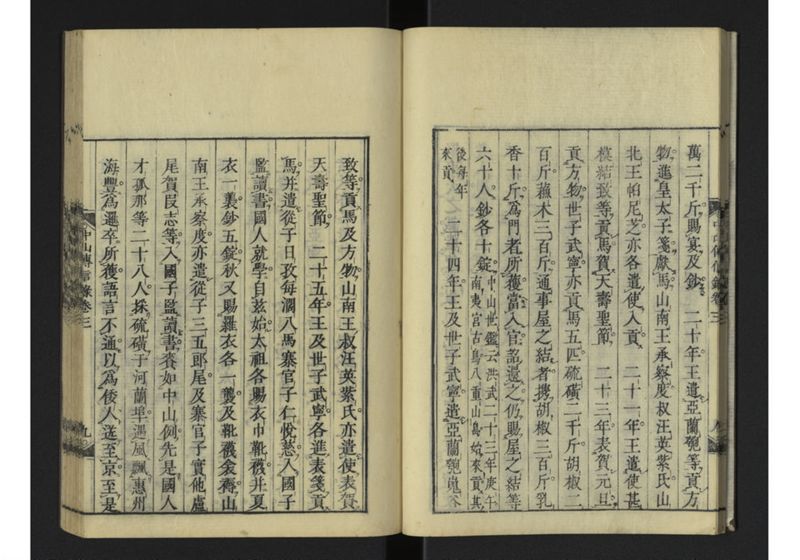 萬二千斤賜宴及鈔　二十年王遣亞蘭匏等貢方
物進皇太子箋獻馬山南王承察度叔汪英紫氏山
北王帕尼芝亦各遣使入貢　二十一年王遣使甚
模結致等貢馬賀天壽聖節　二十三年表賀元旦
貢方物世子武寧亦貢馬五匹硫磺二千斤胡椒二
百斤蘇木三百斤通事屋之結者携胡椒三百斤乳
香十斤為門者所獲當入官詔還之仍賜屋之結等
六十人鈔各十錠中山世鑑云洪武二十三年庚午
南夷宮古島八重山島始來貢其
後每年
來貢　二十四年王及世子武寧遣亞蘭匏嵬谷
致等貢馬及方物山南王叔汪英紫氏亦遣使表賀
天壽聖節　二十五年王及世子武寧各進表箋貢
馬并遣從子日孜每濶八馬寨官子仁悅慈入國子
監讀書國人就學自茲始太祖各賜衣巾靴襪并夏
衣一襲鈔五錠秋又賜羅衣各一襲及靴襪衾褥山
南王承察度亦遣從子三五郎尾及寨官子實他盧
尾賀叚志等入國子監讀書賚如中山例先是國人
才孤那等二十八人採硫磺于河蘭埠遇風飄惠州
海豐為邏卒所獲語言不通以為倭人送至京至是
中山傳信錄卷三
九